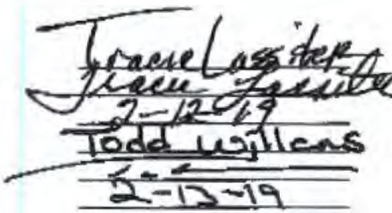 Tracie Lassiter
Tracie Lassiter
2-12-19
Todd Willens
2-13-19